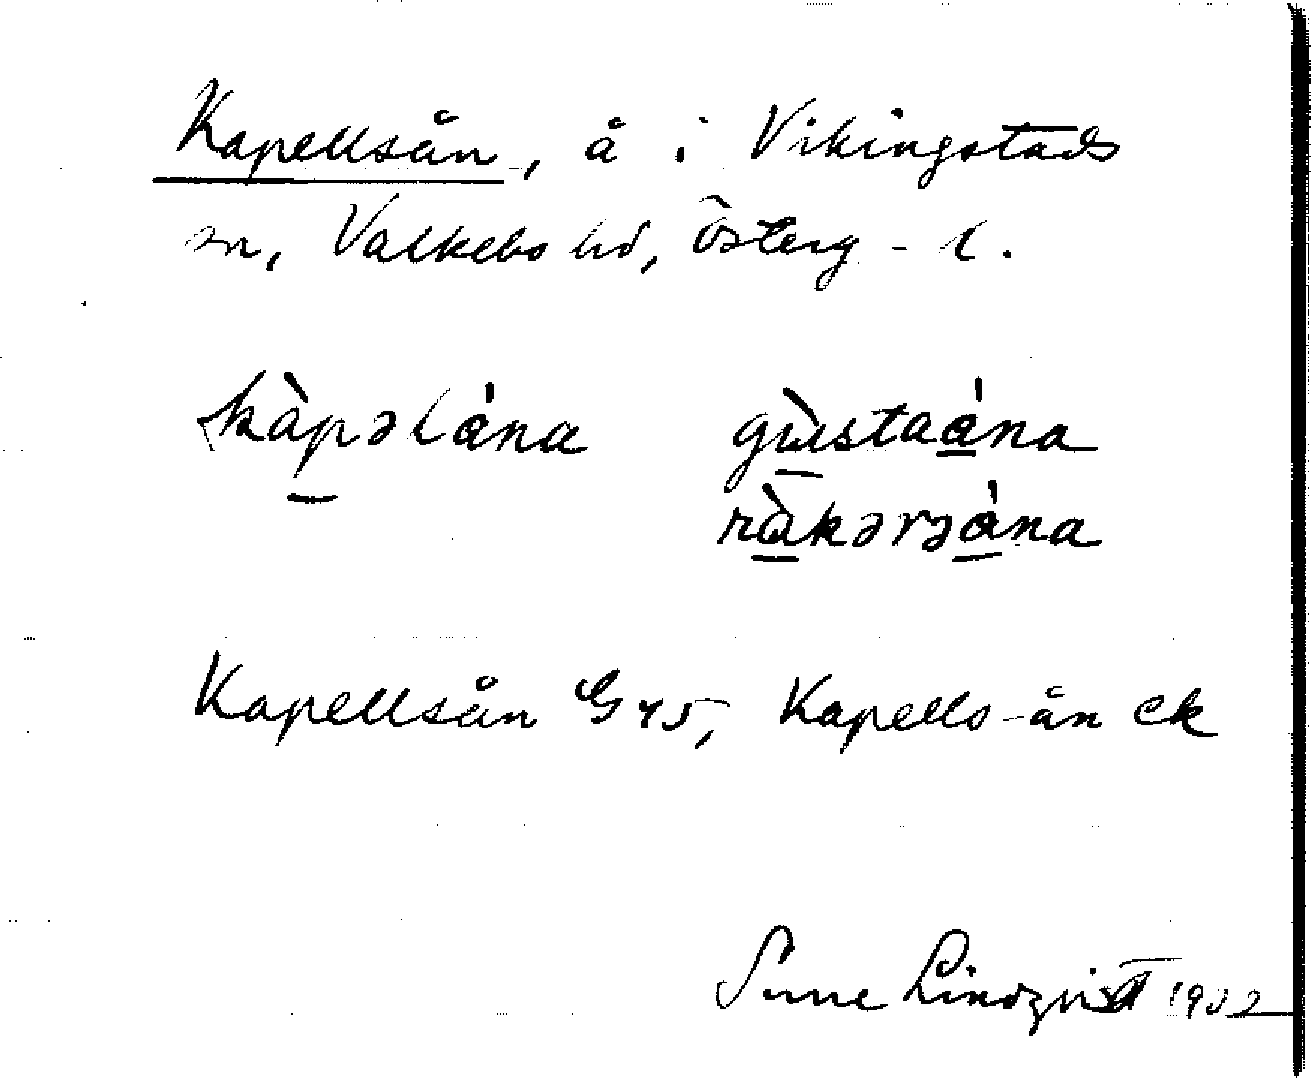 Kapellsån, å i Vikingstads
sn, Valkebo hd, Österg-l.
kàpəlána gùstaána
ràkərsána
Kapellsån G 45, Kapells-ån ek
Sune Lindqvist 1902